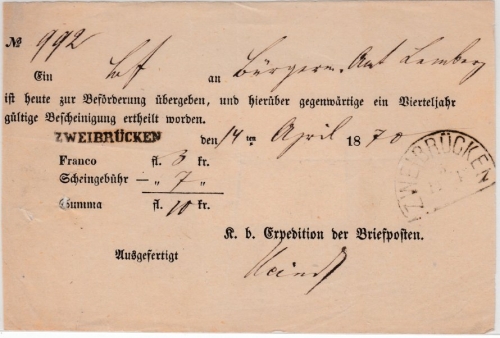 № 992
Ein an Bürgerm. Amt Lemberg
ist heute zur Beförderung übergeben, und hierüber gegenwärtige ein Vierteljahr
gültige Bescheinigung ertheilt worden.
ZWEIBRÜCKEN den 14 ten April 1870
Franco fl. 3 kr.
Scheingebühr — „ 7 „
Summa fl. 10 kr.
ZWEIBRÜCKEN
K. b. Expedition der Briefposten.
Ausgefertigt